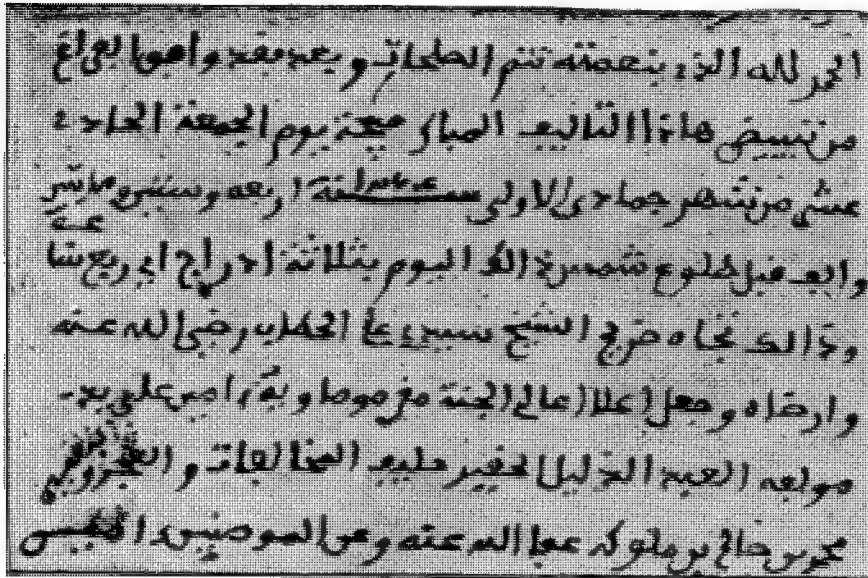 الحمد لله الذي بنعمته تتم الصلحات وبعد بقد وابو الفراغ
من تبييض هاذا التاليف المبارك صبيحة يوم الجمعة الحادي
عشر من شهر جمادى الاولى سنة اربعه وستين مايتين
والف قبل طلوع شمس ذالك اليوم بثلاثة ادراج اي ربع سا
عة
وذالك تجاه ضريح الشيخ سيدي علي الحطاب رضي الله عنه
وارضاه وجعل اعلا اعالي الجنة مفره وماويه امين على يد
مولفه العبد الذليل الحفير حليف المخالفات والعجز
محمد بن صالح بن ملوكه عفا الله عنه وعن المومنين